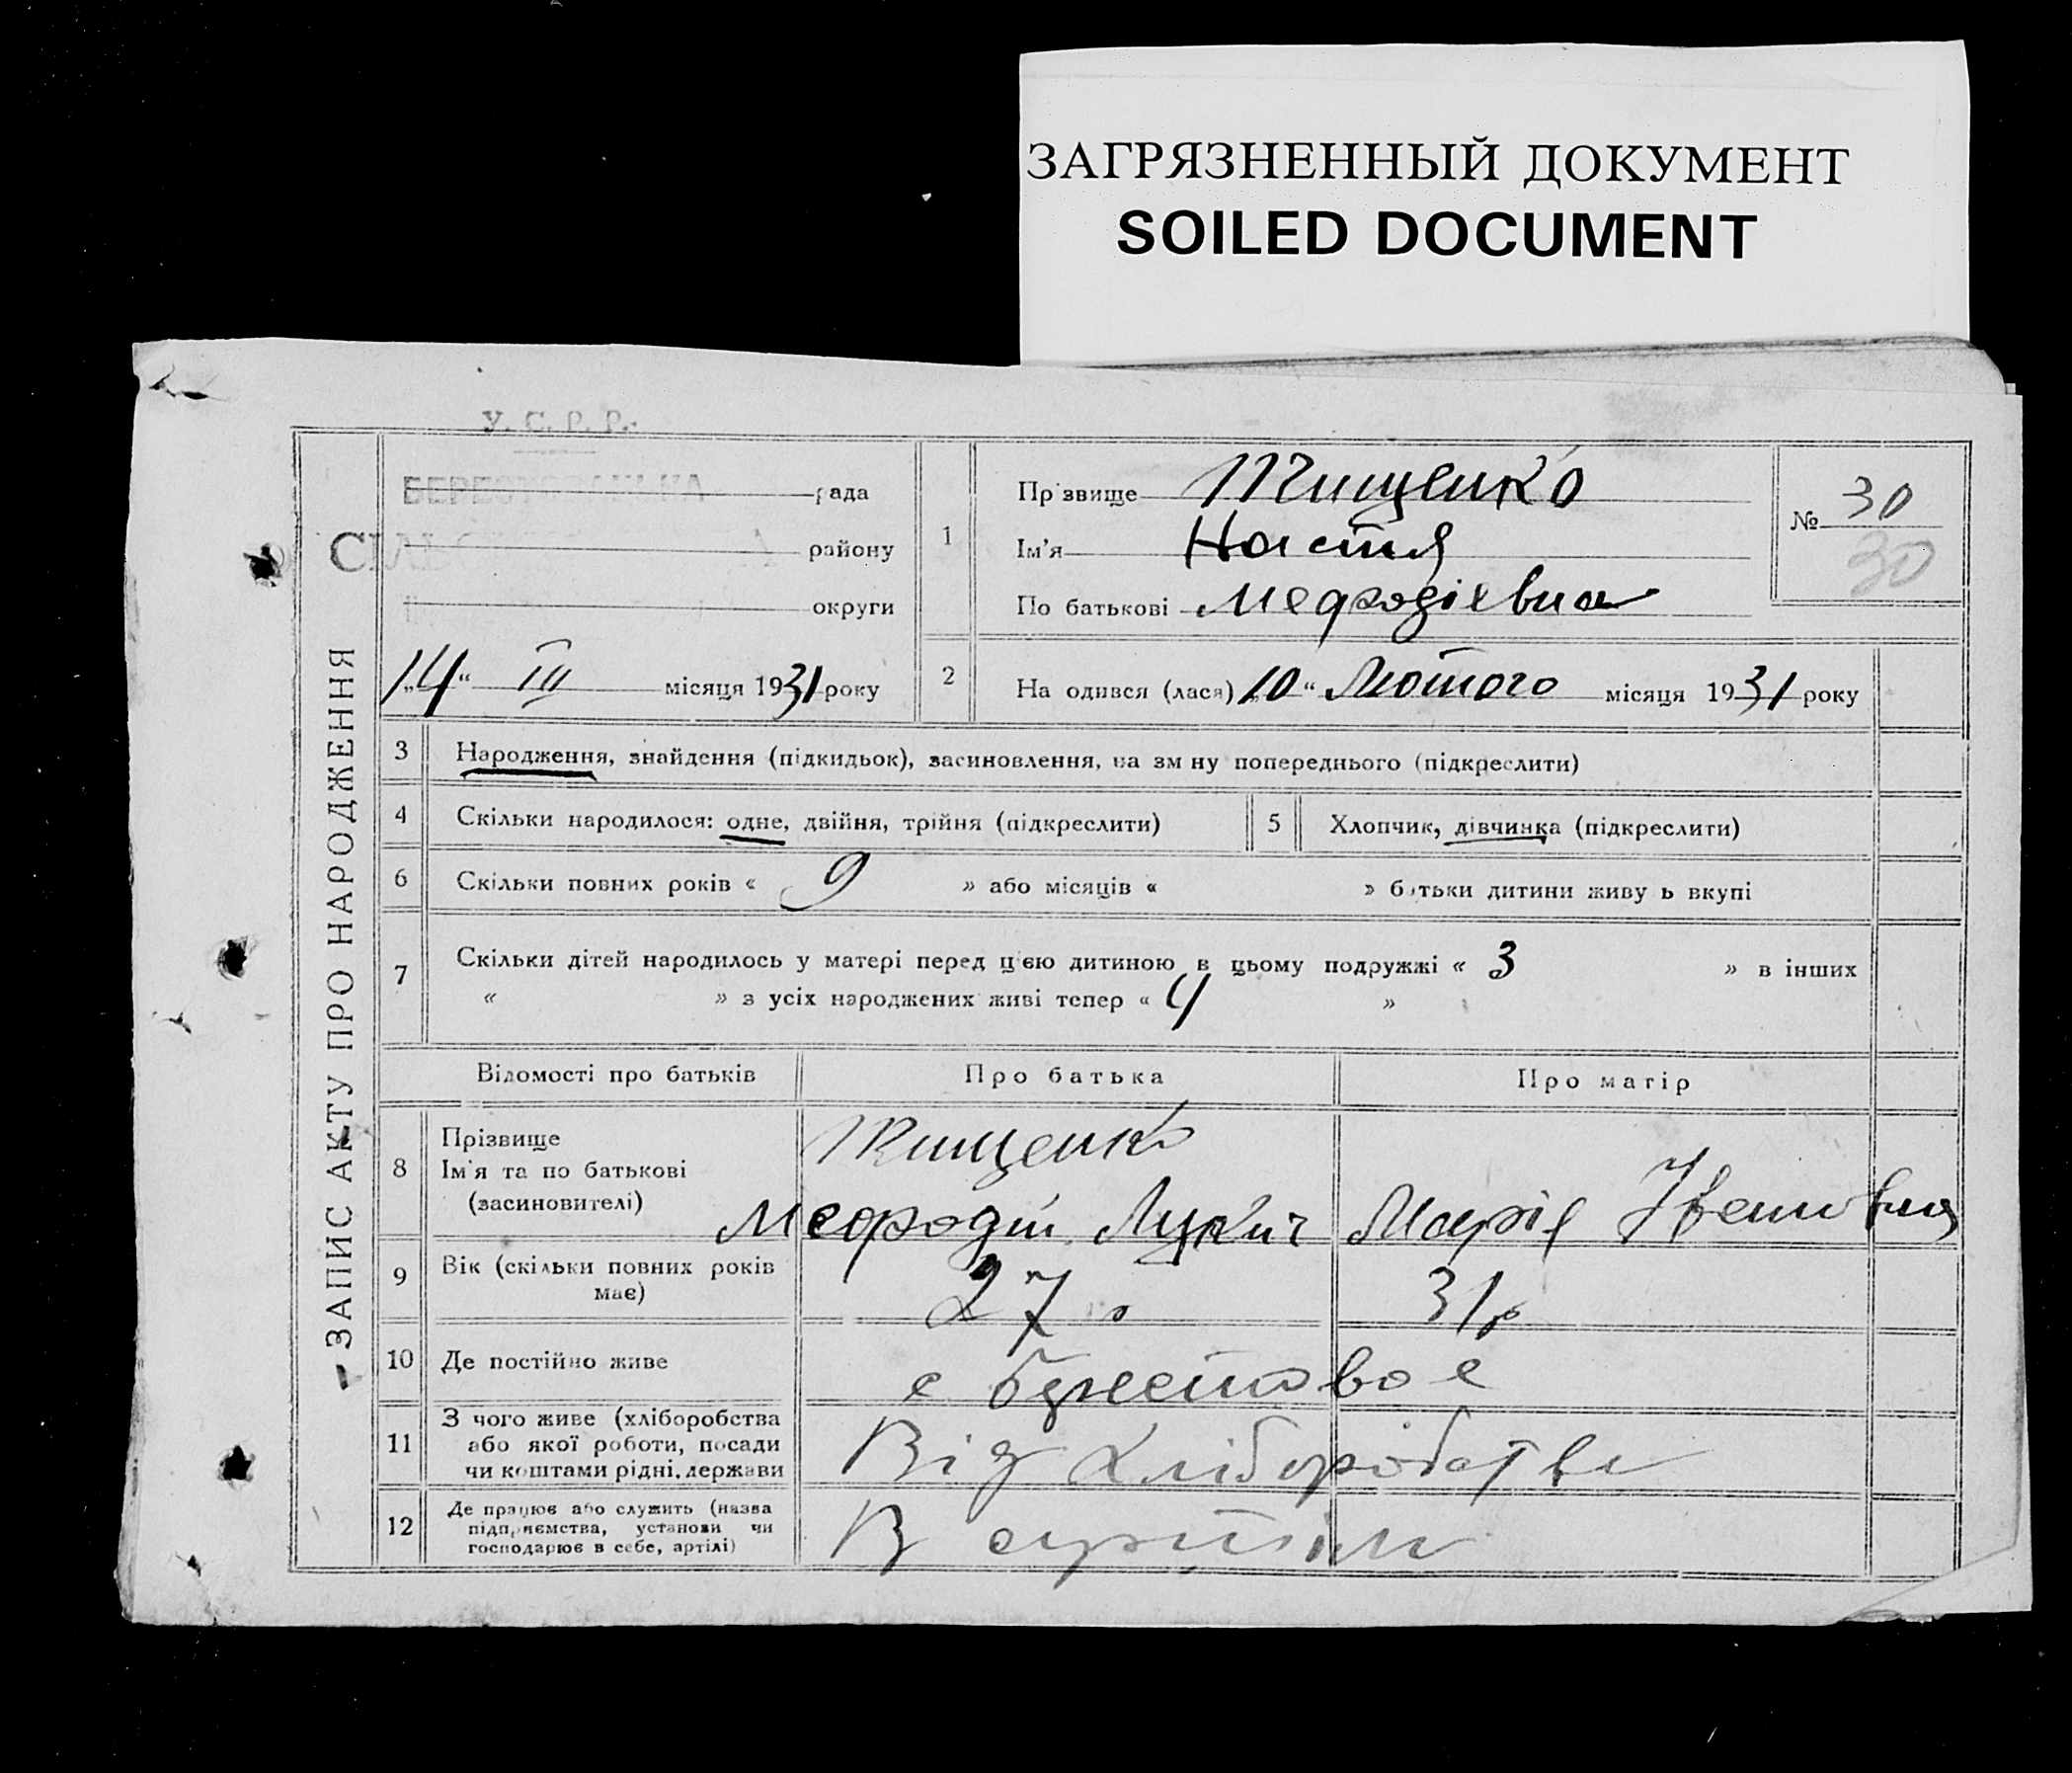 ЗАГРЯЗНЕННЫЙ ДОКУМЕНТ
SOILED DOCUMENT
У. С. Р. Р.
рада
району
округи
„14“ III місяця 1931 року
ЗАПИС АКТУ ПРО НАРОДЖЕННЯ
1
Прізвище Тищенко
Ім'я Настя
По батькові Мефодіевна
№ 30
30
2 На одився (лася) „10“ Лютого місяця 1931 року
3 Народження, знайдення (підкидьок), засиновлення, на зм ну попереднього (підкреслити)
4 Скільки народилося: одне, двійня, трійня (підкреслити)
5 Хлопчик, дівчинка (підкреслити)
6 Скільки повних років « 9 » або місяців « » батьки дитини живу ь вкупі
7 Скільки дітей народилось у матері перед цією дитиною в цьому подружжі « 3 » в інших
« » з усіх народжених живі тепер « 4 »
Відомості про батьків Про батька Про матір
8 Прізвище
Ім'я та по батькові
(засиновителі)
Тищенко
Мефодій Лукич Марія Івановна
9 Вік (скільки повних років має)
27 31р
10 Де постійно живе
с Берестовое
11 З чого живе (хліборобства
або якої роботи, посади
чи коштами рідні, держави
Від хліборобства
12 Де працює або служить (назва
підприємства, установи чи
господарює в себе, артілі)
В артілі